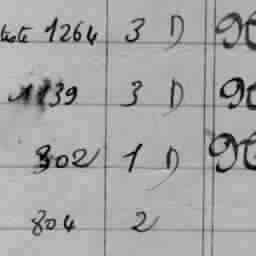 1264 3 D 90
1139 3 D 90
302 1 D 90
804 2